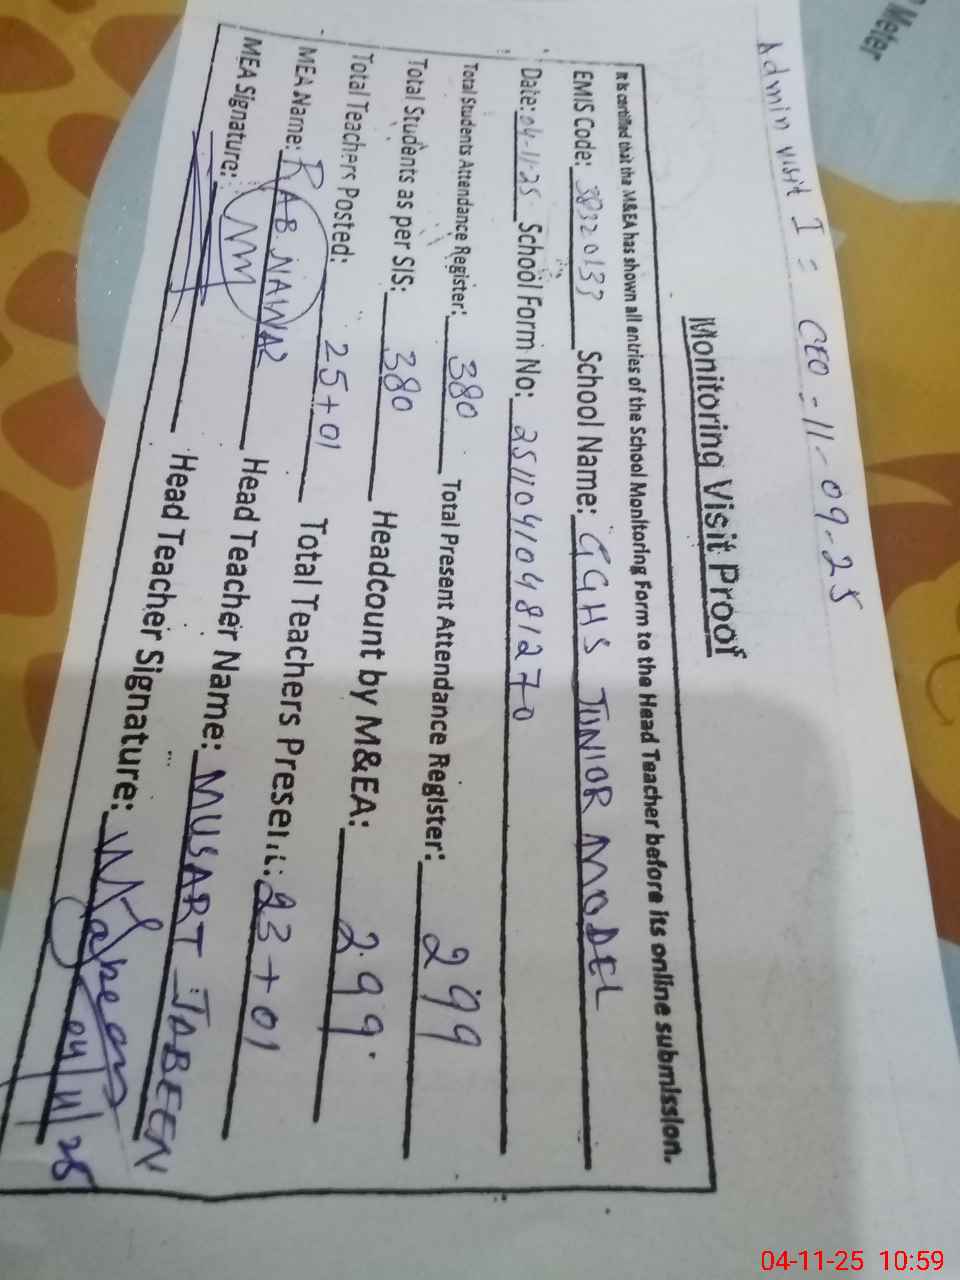 Meter
Admin visit I = CEO - 11-09-25
Monitoring Visit Proof
It is certified that the M&EA has shown all entries of the School Monitoring Form to the Head Teacher before its online submission.
EMIS Code: 38320133 School Name: GGHS JUNIOR MODEL
Date: 04-11-25 School Form No: 25110410481270
Total Students Attendance Register: 380 Total Present Attendance Register: 299
Total Students as per SIS: 380 Headcount by M&EA: 299
Total Teachers Posted: 25+01 Total Teachers Present: 23+01
MEA Name: RAB NAWAZ Head Teacher Name: MUSART JABEEN
MEA Signature: Head Teacher Signature:
04/11/25
04-11-25 10:59